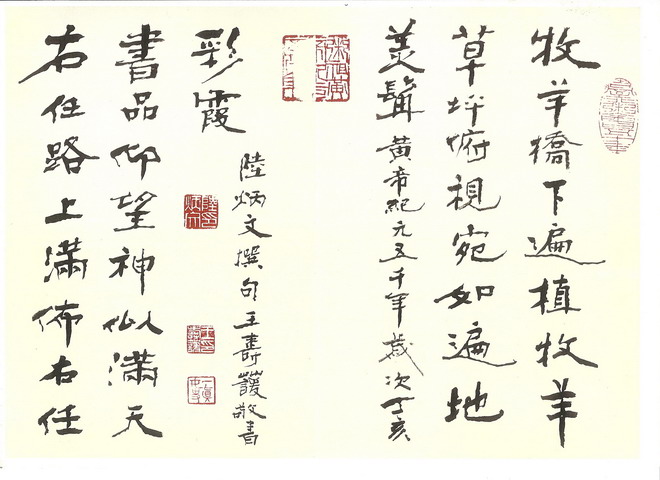 牧羊橋下遍植牧羊
草坪俯視宛如遍地
美髯 黃帝紀元五千年歲次丁亥
右任路上滿佈右任
書品仰望神似滿天
彩霞
陸炳文撰句王壽蘐敬書